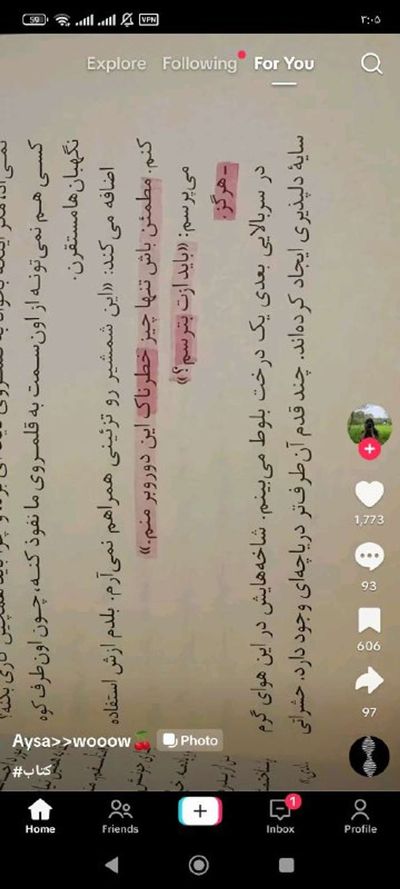 59
VPN
۳:۰۵
Explore
Following
For You
کسی هم نمی‌تونه از اون سمت به قلمروی ما نفوذ کنه، چون اون طرف کوه
نگهبان‌ها مستقرن.
اضافه می‌کند: «این شمشیر رو تزئینی همراهم نمی‌آرم. بلدم ازش استفاده
کنم. مطمئن باش تنها چیز خطرناک این دوروبر منم.»
می‌پرسم: «باید ازت بترسم؟»
- هرگز.
در سربالایی بعدی یک درخت بلوط می‌بینم. شاخه‌هایش در این هوای گرم
سایهٔ دلپذیری ایجاد کرده‌اند. چند قدم آن‌طرف‌تر دریاچه‌ای وجود دارد. حشراتی
1,773
93
606
97
Aysa>>wooow🍒
Photo
#کتاب
Home
Friends
Inbox
1
Profile